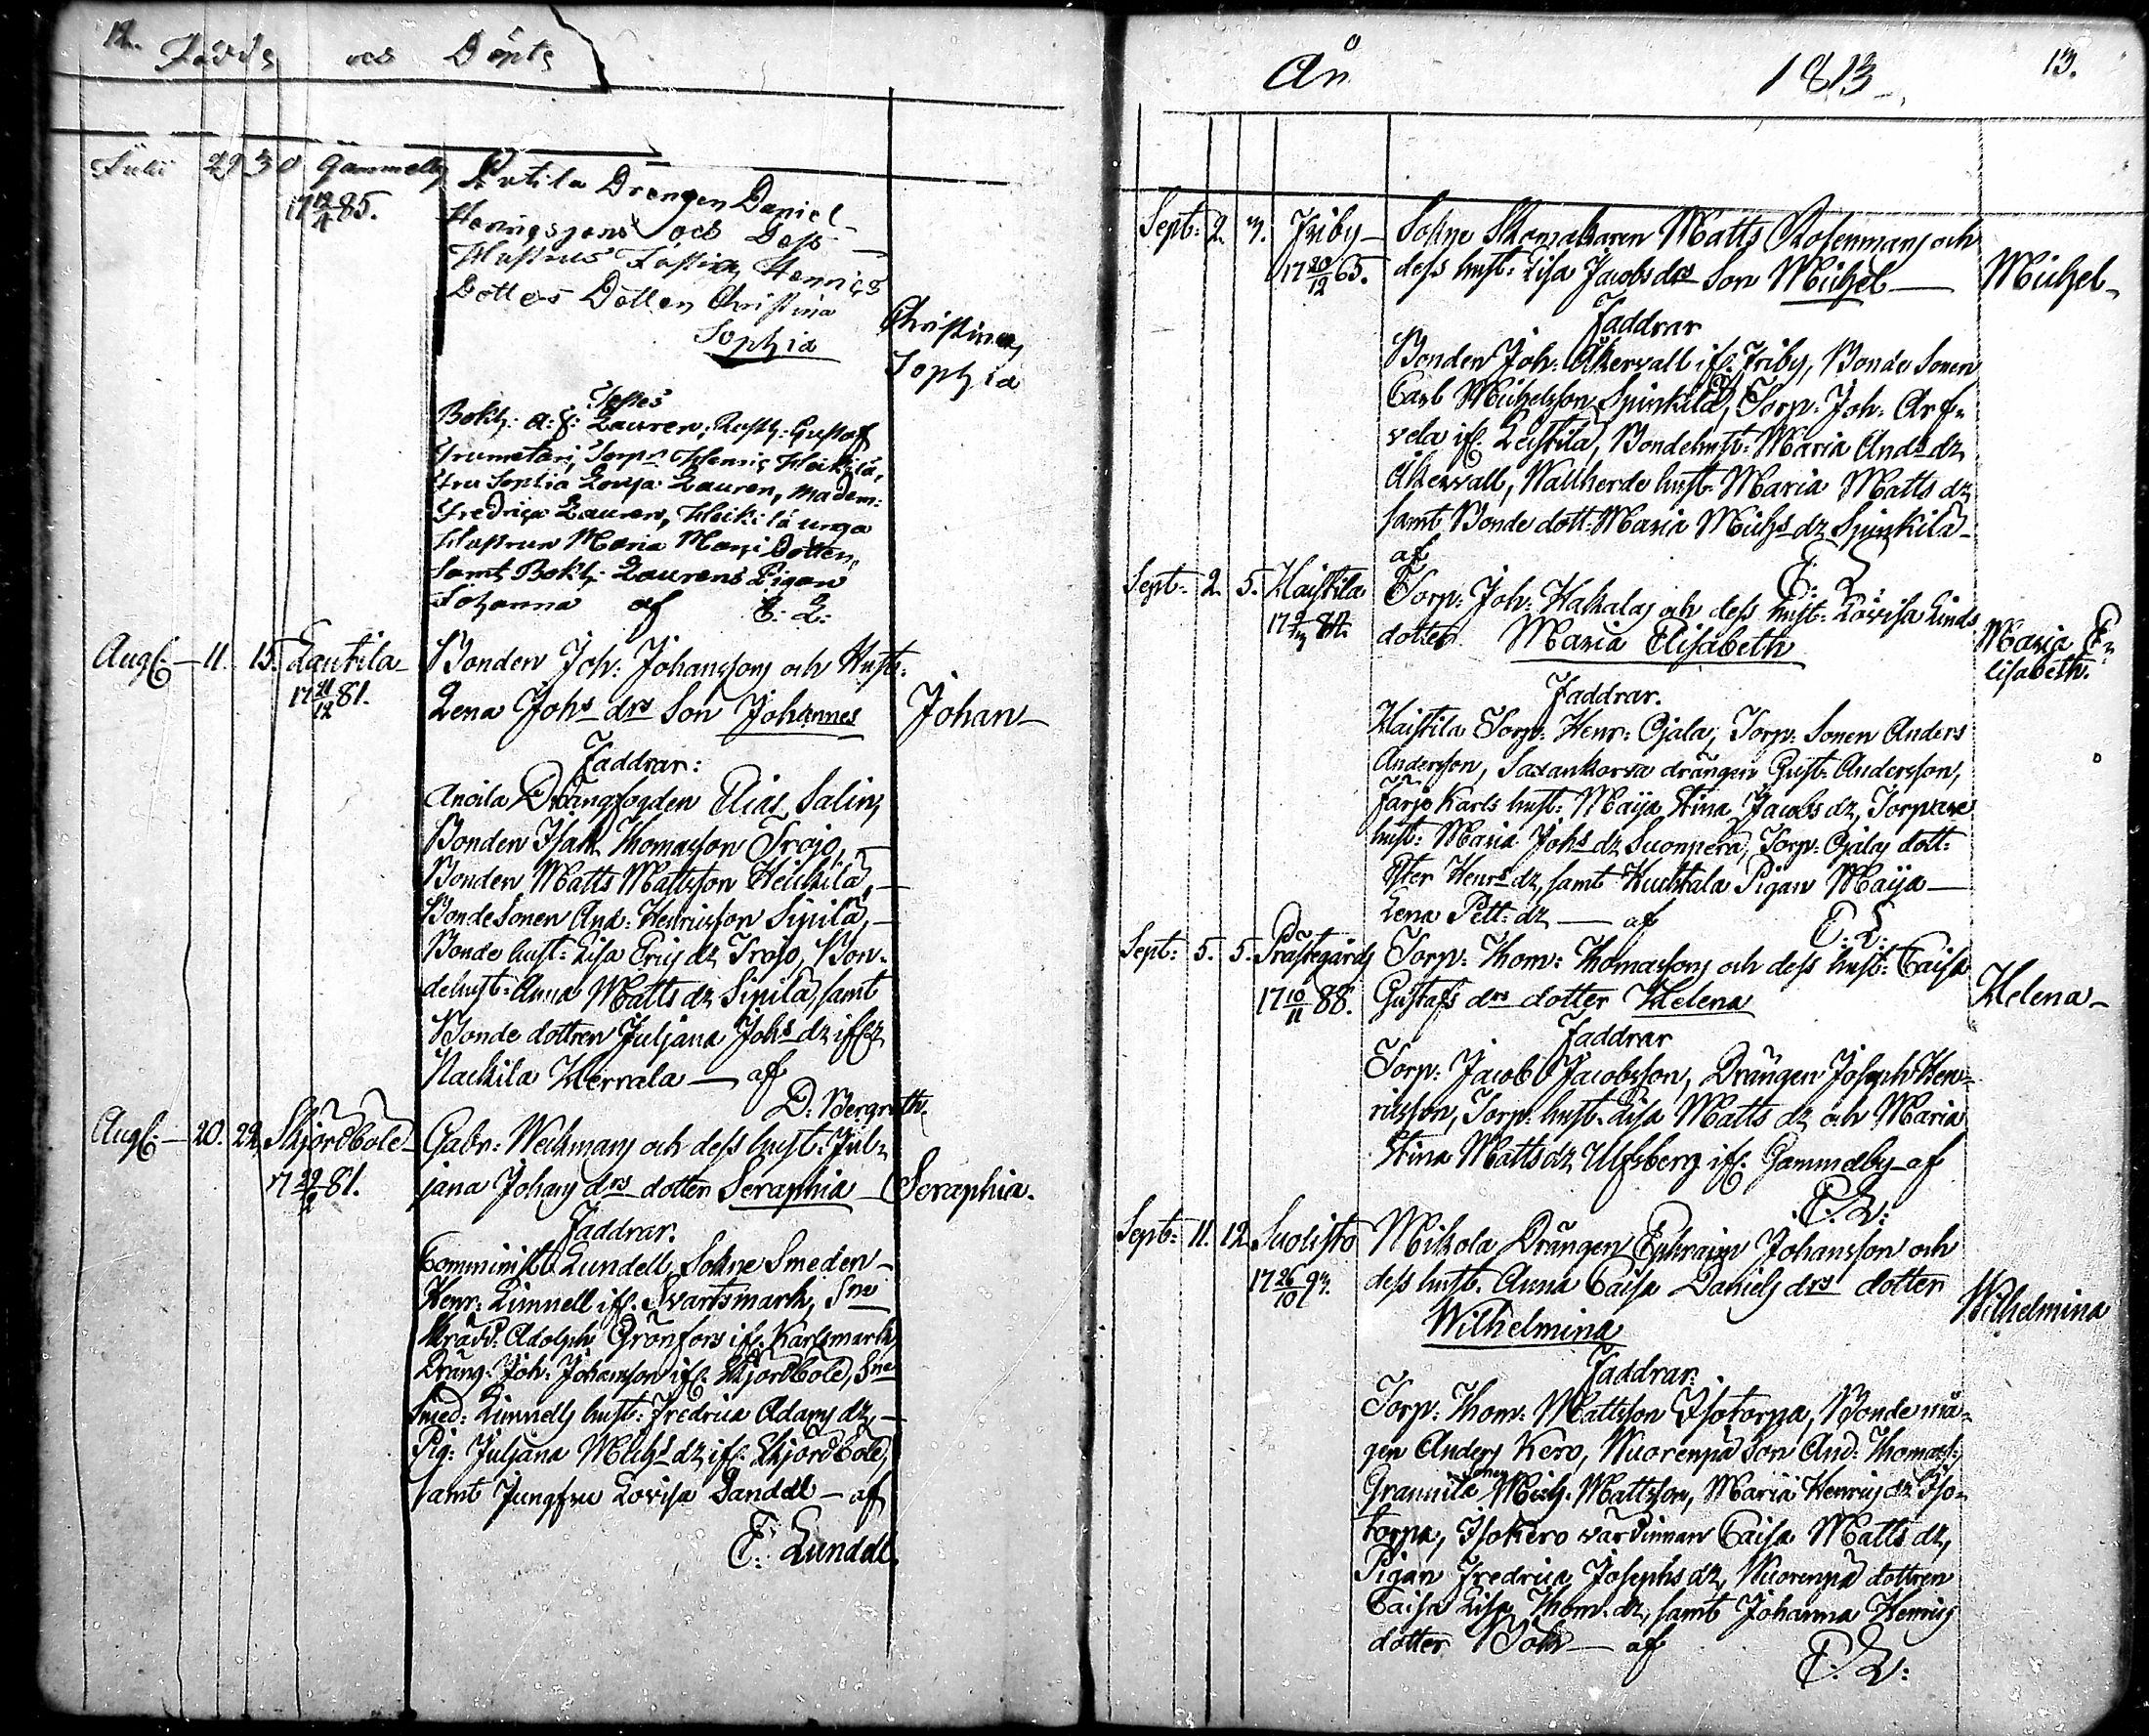 12.
Födde och Döpte
Julii 29 30 Gammelby Rutila Drengen Daniel
17 12/4 85. Henricssons och Dess
Hustrus Henrics
Dotters Dotter Christina
Sophia
Christina
Sophia
Testes
Bokh: A: F: Lauren, Rusth: Gustaf
Torp: Henric Heikilä,
Fru Sophia Lovisa Lauren, Madem:
Fredrica Lauren, Heikilä unga
Hustrun Maria Dotter,
Samt Bokh: Laurens Pigan
Johanna af E: L:
Aug: 11. 15. Lautila Bonden Joh: Johanssons och Hust:
17 21/12 81. Lena Johs drs Son Johannes Johan
Faddrar:
Anoila Drängfogden Elias Salin,
Bonden Isak Thomasson Trojo,
Bonden Matts Mattsson Heikilä,
Bonde Sonen And: Henricsson Sipilä,
Bonde hust: Lisa Erics dr Trojo, Bon-
dehust: Anna Matts dr Sipilä, samt
Bonde dottren Juljana Johs dr ifr.
Nackila Herrala af
D: Bergroth.
Aug: 20. 22. Skjordbole Gabr: Weckmans och dess hust: Jul-
17 22/2 81. jana Johans drs dotter Seraphia Seraphia.
Faddrar.
Comminist. Lundell, Sokne Smeden
Henr: Limnell ifr. Svartsmark, Sne
Skrädd: Adolph Grönfors ifr. Karlsmark,
Dräng: Joh: Johansson ifr. Skjordbole, Sne
Smed: Limnells hust: Fredrica Adams dr,
Pig: Juljana Michs dr ifr. Skjordbole,
samt Jungfru Lovisa Sandell af
E: Lundell
År 1813 13.
Sept: 2. 3. Friby Sokne Skomakaren Matts Rosenmans och
17 20/12 65. dess hust: Lisa Jacobs drs Son Michel Michel
Faddrar
Bonden Joh: Åkervall ifr. Friby, Bonde Sonen
Carl Michelsson Spinkilä, Torp: Joh: Arf-
vela ifr. Leistilä, Bondehust: Maria Ands dr
Åkervall, Wallherde hust: Maria Matts dr
samt Bonde dott: Maria Michs dr Spinkilä
af
E: L:
Sept: 2. 5. Haistila Torp: Joh: Hakalas och dess hust: Lovisa Linds
dotter Maria Elisabeth Maria E-
lisabeth.
Faddrar.
Haistila Torp: Henr: Ojala, Torp: Sonen Anders
Andersson, Saxankorva drängen Gust: Andersson,
Färjo Karls hust: Maija Stina Jacobs dr, Torpare
hust: Maria Johs dr Suonperä, Torp: Ojalas dott:
Henrs dr, samt Kuckala Pigan Maija
Lena Pett: dr af
E: L:
Sept: 5. 5. Prästegårds Torp: Thom: Thomassons och dess hust: Caisa
17 10/11 88. Gustafs drs dotter Helena Helena
Faddrar
Torp: Jacob Jacobsson, Drängen Joseph Hen-
ricsson, Torp: hust: Lisa Matts dr och Maria
Stina Matts dr Ulfsberg ifr. Gammelby af
E: L:
Sept: 11. 12. Suolisto Mikola Drängen Ephraim Johansson och
17 26/10 93. dess hust: Anna Caisa Daniels drs dotter
Wilhelmina Wilhelmina
Faddrar.
Torp: Thom: Mattsson Isotorpa, Bonde må-
gen Anders Kero, Wuorenpä Son And: Thomass:
Grannila Sonen Mich: Mattsson, Maria Henrics dr Iso-
torpa, Isokero värdinnan Caisa Matts dr,
Pigan Fredrica Josephs dr, Wuorenpä dottren
Caisa Lisa Thom: dr, samt Johanna Henrics
dotter af
E: L: